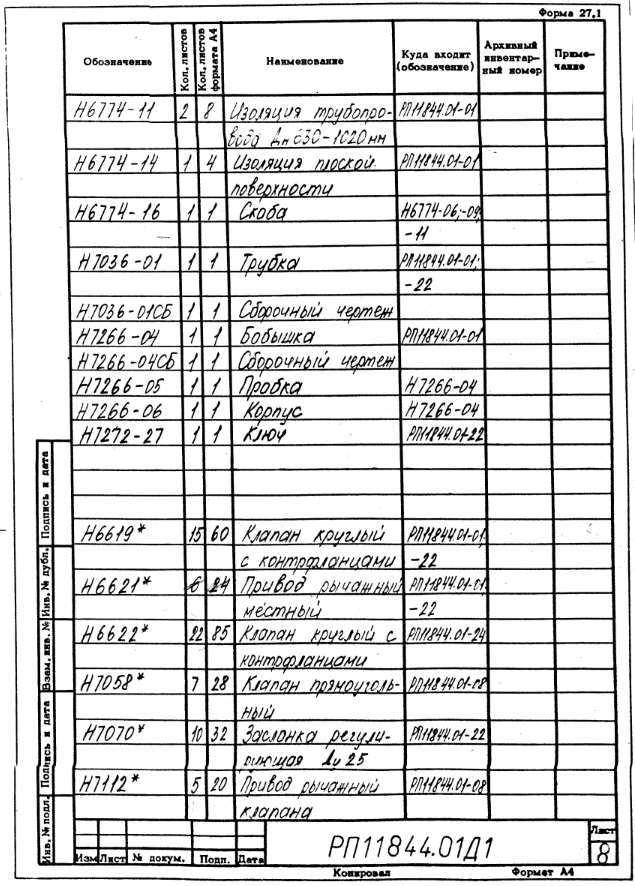 Форма 27.1
Обозначение Кол. листов Кол. листов формата А4 Наименование Куда входит (обозначение) Архивный инвентарный номер Примечание
Н6774-11 2 8 Изоляция трубопро- РП11844.01-01
вода Дн 630-1020мм
Н6774-14 1 4 Изоляция плоской РП11844.01-01
поверхности
Н6774-16 1 1 Скоба Н6774-06;-09;
-11
Н7036-01 1 1 Трубка РП11844.01-01;
-22
Н7036-01СБ 1 1 Сборочный чертеж
Н7266-04 1 1 Бобышка РП11844.01-01
Н7266-04СБ 1 1 Сборочный чертеж
Н7266-05 1 1 Пробка Н7266-04
Н7266-06 1 1 Корпус Н7266-04
Н7272-27 1 1 Ключ РП11844.01-22
Н6619* 15 60 Клапан круглый РП11844.01-01
с контрфланцами -22
Н6621* 6 24 Привод рычажный РП11844.01-01
местный -22
Н6622* 22 85 Клапан круглый с РП11844.01-24
контрфланцами
Н7058* 7 28 Клапан прямоуголь- РП11844.01-08
ный
Н7070* 10 32 Заслонка регули- РП11844.01-22
рующая Ду 25
Н7112* 5 20 Привод рычажный РП11844.01-08
клапана
Инв. № подл. Подпись и дата Взам. инв. № Инв. № дубл. Подпись и дата
РП11844.01Д1
Лист
8
Изм Лист № докум. Подп. Дата
Копировал Формат А4